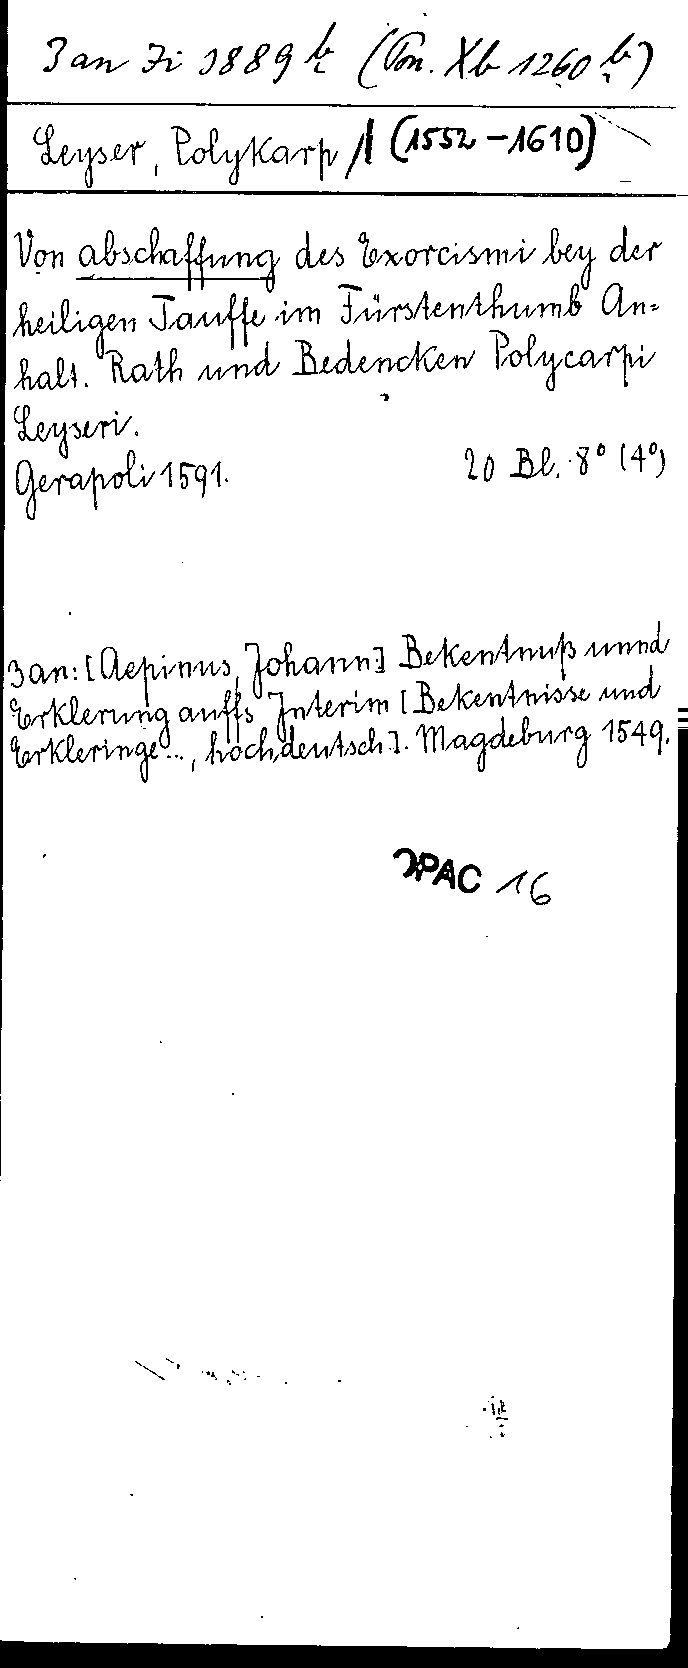 3 an Fi 1889 b (Pon. Xb 1260 b)
Leyser, Polykarp /1 (1552-1610)
Von abschaffung des Exorcismi bey der
heiligen Tauffe im Fürstenthumb An=
halt. Rath und Bedencken Polycarpi
Leyseri.
Gerapoli 1591. 20 Bl. 8° (4°)
3 an: [Aepinus, Johann] Bekentnuß unnd
Erklerung auffs Interim [Bekentnisse und
Erkleringe..., hochdeutsch]. Magdeburg 1549.
OPAC 16